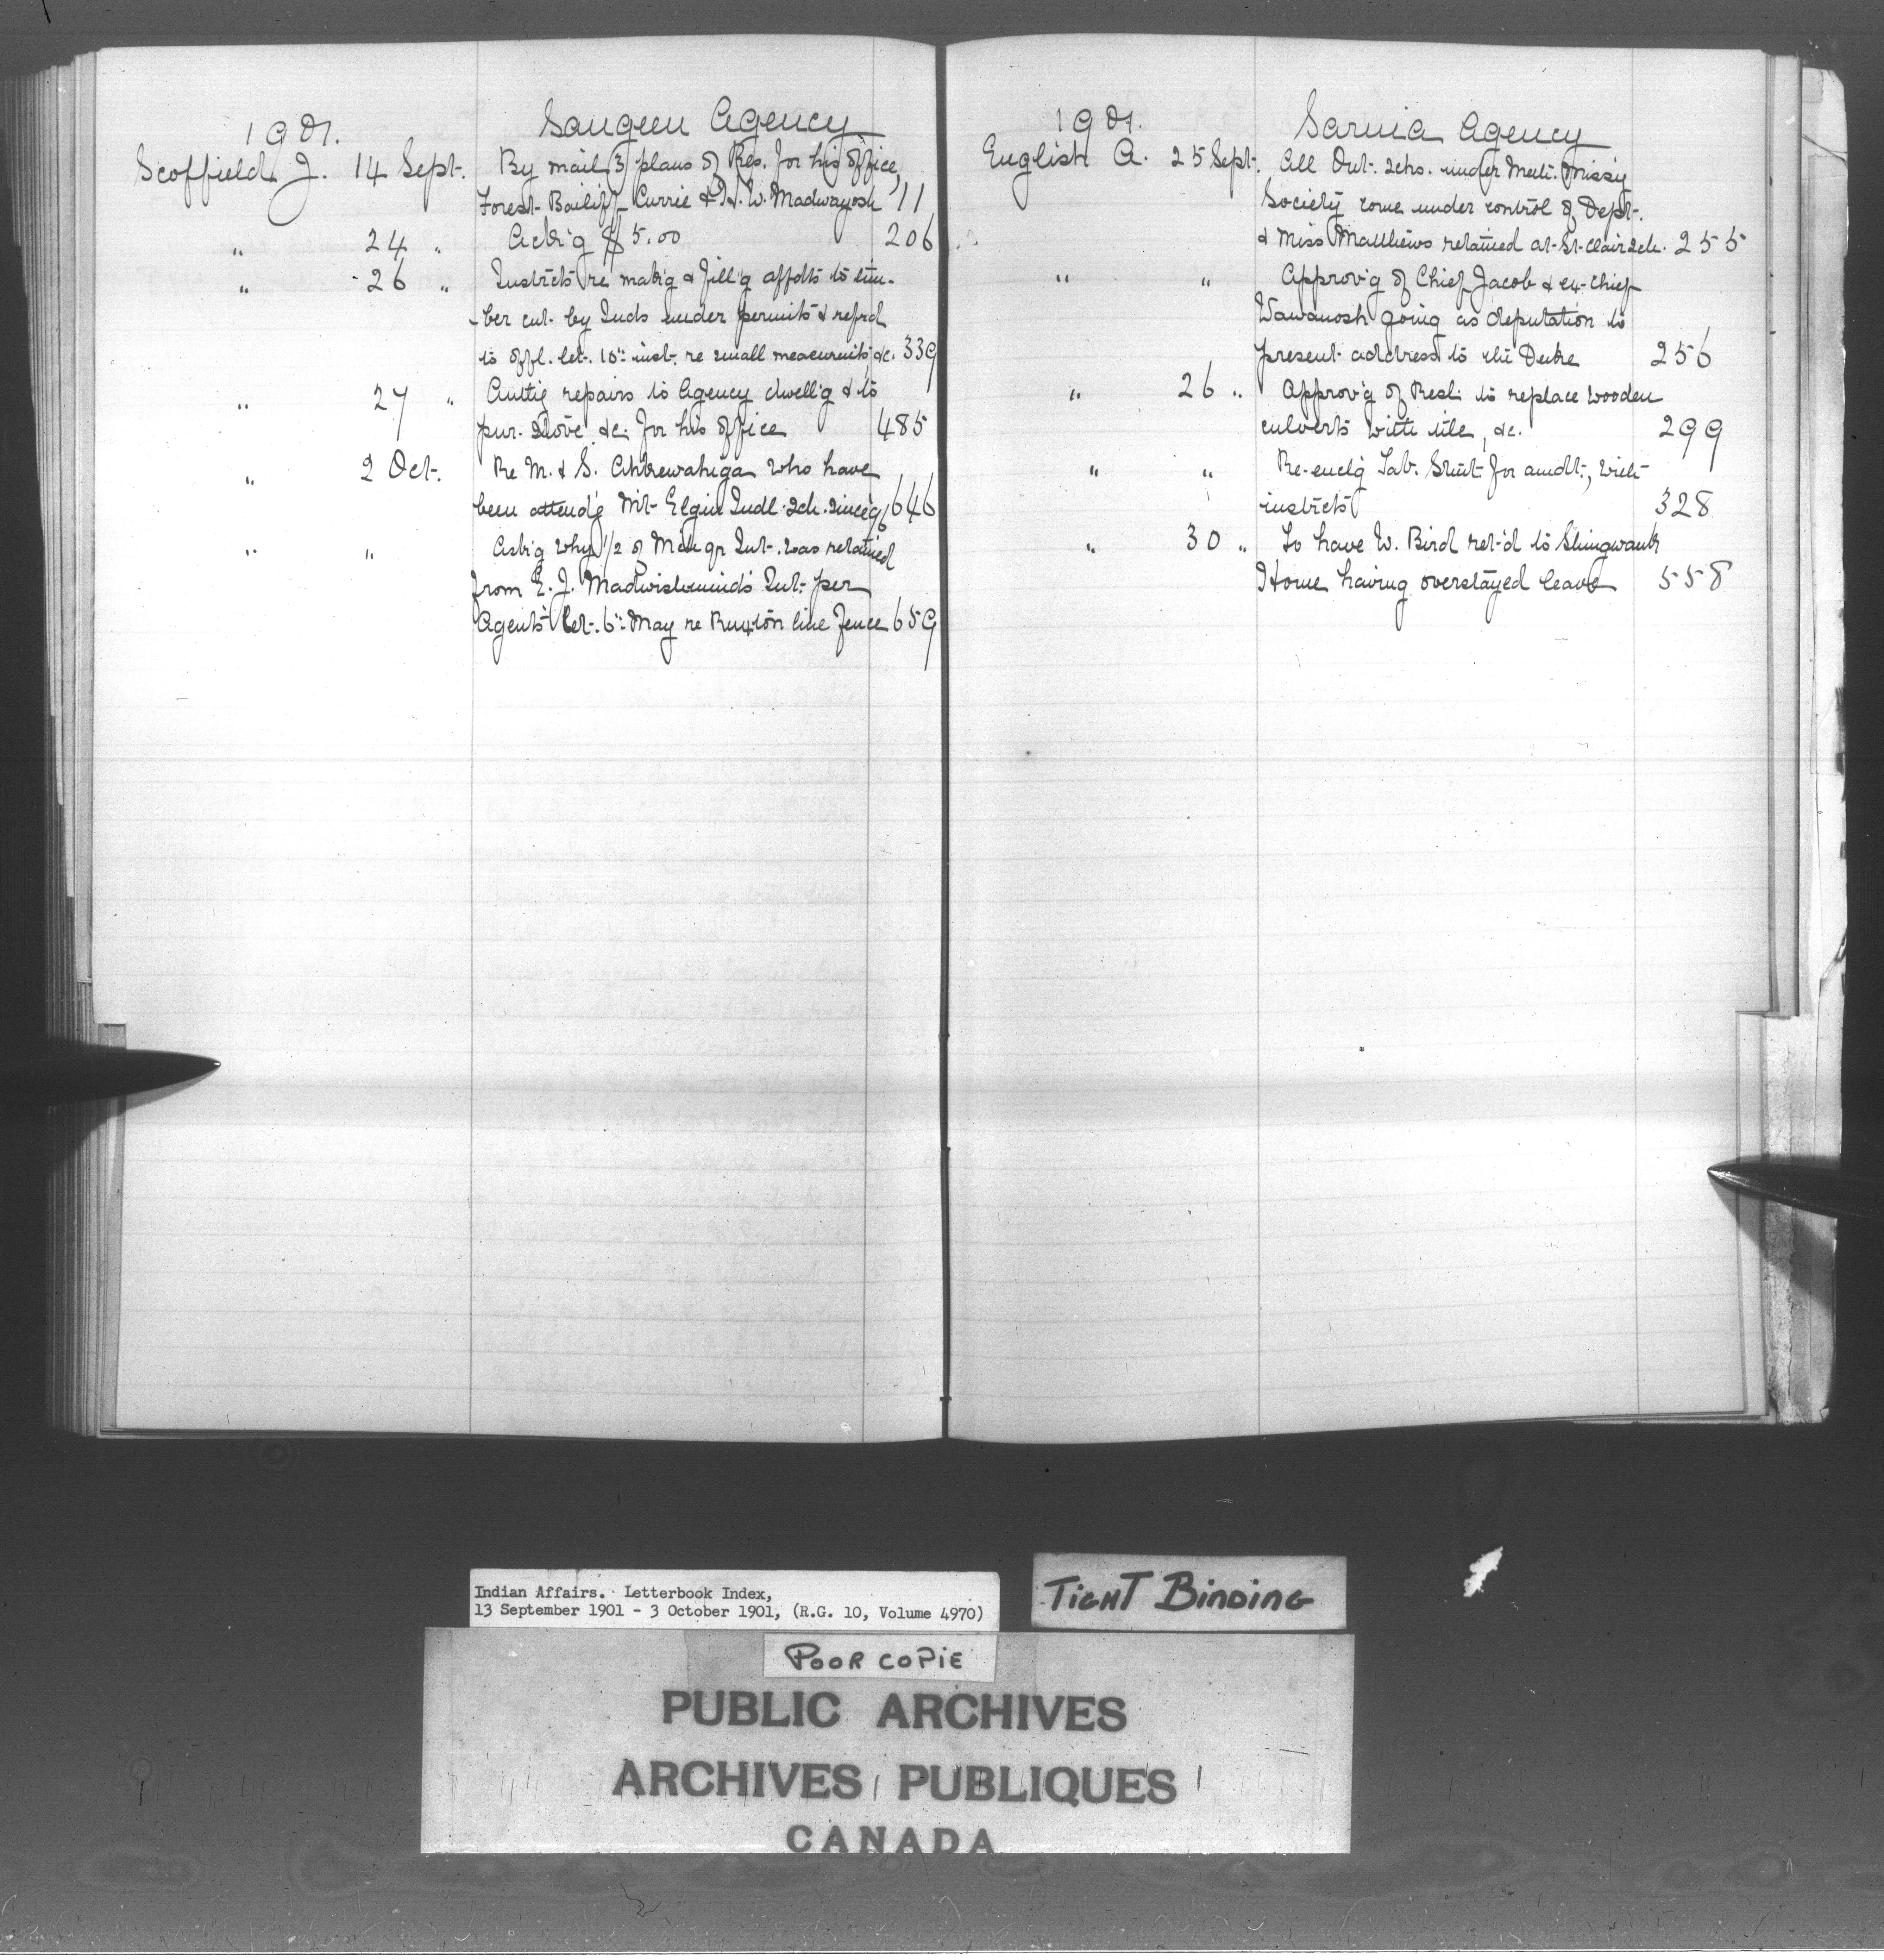 1901. Saugeen Agency
Scoffield J. 14 Sept. By mail 3 plans of Res. for his office,
Forest Bailiff Currie & H. W. Madwayosh 11
" 24 " Ack'g $5.00 206
" 26 " Instrcts re mak'g & fill'g affdts to tim-
-ber cut by Inds under permits & refrd
to offl. let. 10" inst. re small measuremts, &c. 339
" 27 " Authg repairs to Agency dwell'g & to
pur. stove &c. for his office 485
" 2 Oct. Re M. & S. who have
been attend'g Mt Elgin Indl. Sch. since 96 646
" " Ask'g why 1/2 of Int. was retained
from E. J. Int. per
Agent's let. 6" May re Ruxton line fence 659
1901. Sarnia Agency
English A. 25 Sept. All Ont. Schs. under Meth. Miss'y
Society come under control of Dept.
& Miss Matthews retained at St. Clair Sch. 255
" " Approv'g of Chief Jacob & ex-Chief
Wawanosh going as deputation to
present address to the Duke 256
" 26 " Approv'g of Resl. to replace wooden
culverts with tile, &c. 299
" " Re-encl'g Tab. Stmt for amdt., with
instrcts 328
" 30 " To have W. Bird ret'd to Shingwauk
Home having overstayed leave 558
Indian Affairs. Letterbook Index,
13 September 1901 - 3 October 1901, (R.G. 10, Volume 4970)
TIGHT BINDING
POOR COPIE
PUBLIC ARCHIVES
ARCHIVES PUBLIQUES
CANADA